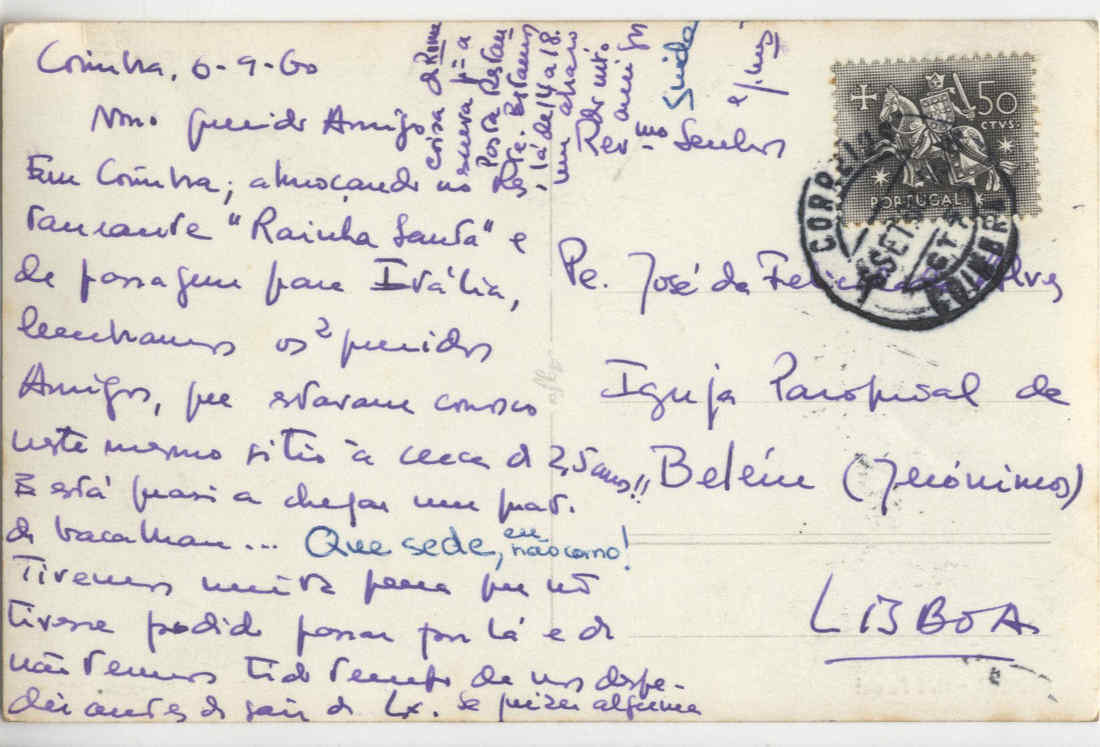 Coimbra, 6-9-60
Nosso querido Amigo
Em Coimbra, almoçando no Res-
taurante "Rainha Santa" e
de passagem para Itália,
lembramos os 2 queridos
Amigos, que estavam conosco
neste mesmo sitio à cerca de 2,5 anos!!
E está quasi a chegar um prat.
de bacalhau... Que sede, eu não como!
Tivemos muita pena que não
tivesse podido passar por lá e de
não termos tido tempo de nos despe-
dir antes de sair de Lx. Se quizer alguma
coisa de Roma
escreva pª a
Posta Restan-
te. Estamos
lá de 14 a 18.
um abraço
do mto.
amigo
Guida
Rev.mo Senhor
Pe. José da Felicidade Alves
Igreja Paroquial de
Belém (Jerónimos)
LISBOA
50
CTVS.
PORTUGAL
CORREIOS
SET
COIMBRA